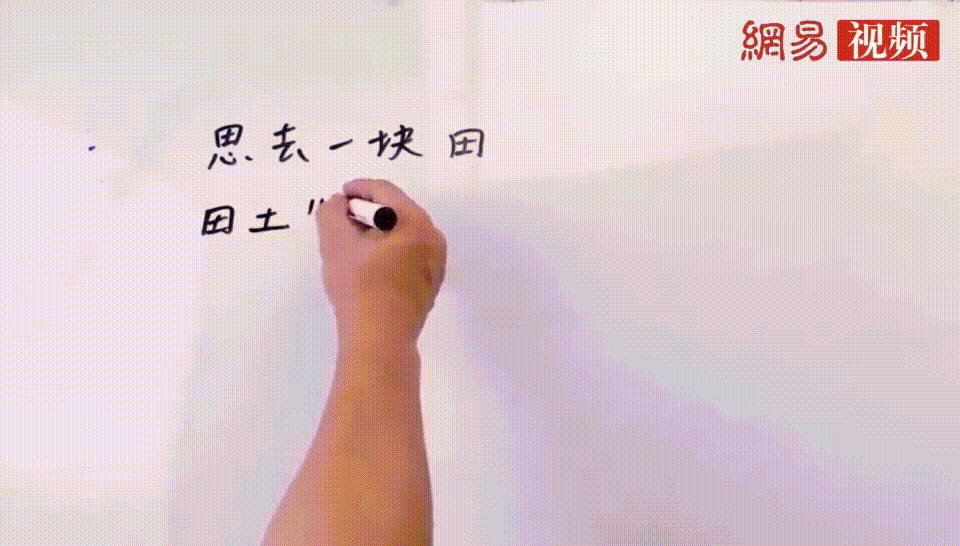 網易 视频
思去一块田
田土"